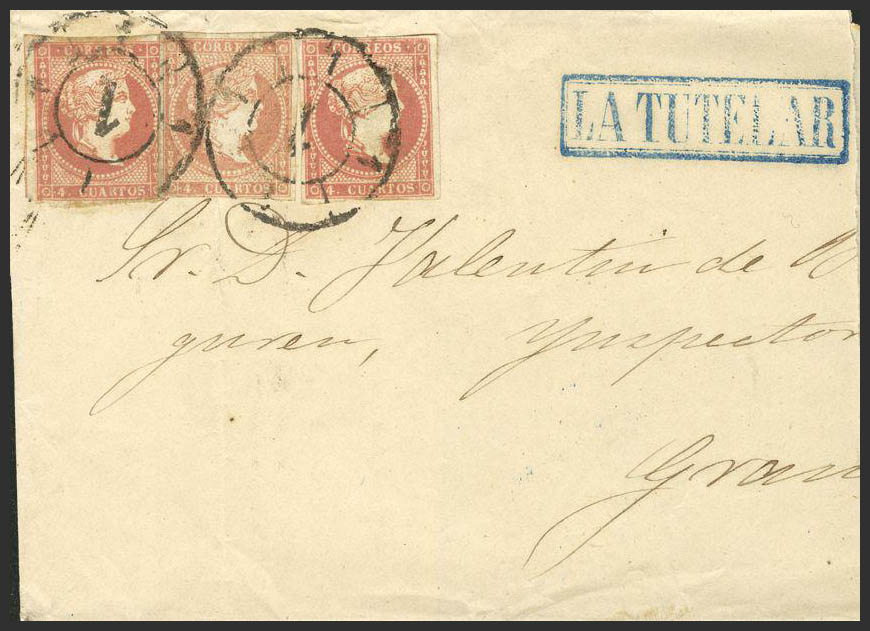 CORREOS CORREOS CORREOS
4. CUARTOS 4. CUARTOS 4. CUARTOS
1 1
LA TUTELAR
Sr. D. Valentin de
guren, Ynspector
Gran